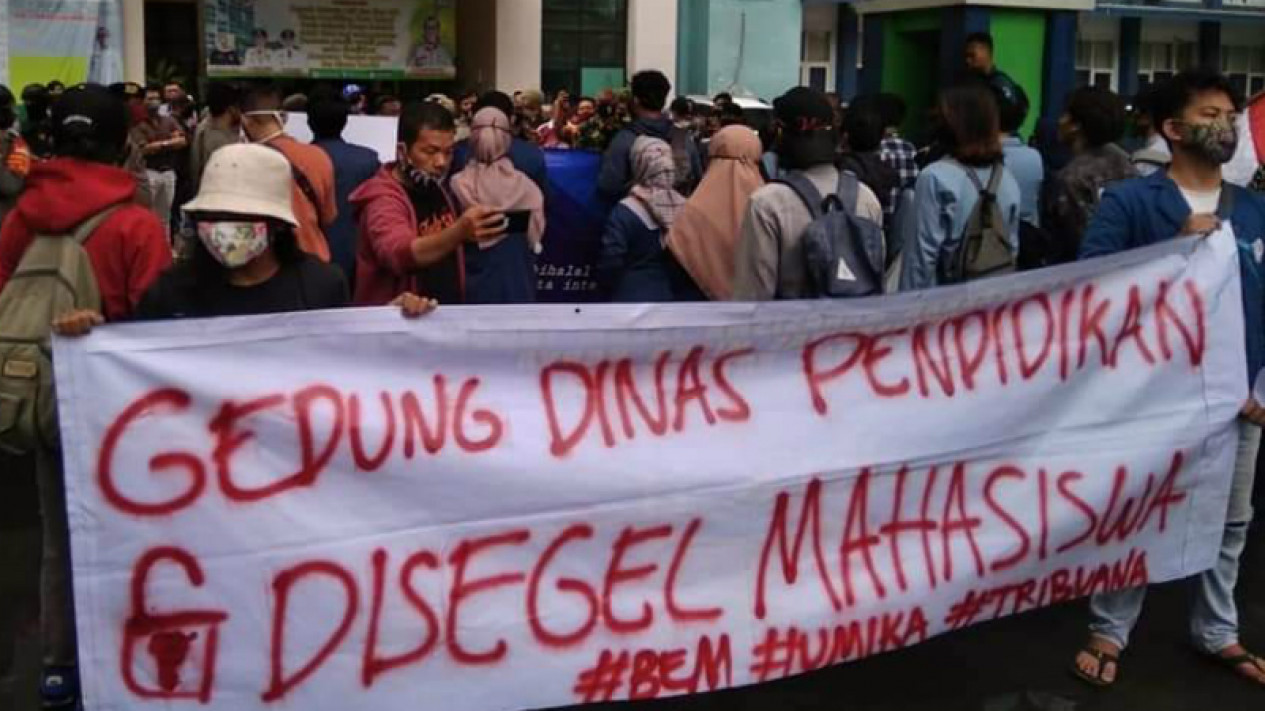 GEDUNG DINAS PENDIDIKAN
DISEGEL MAHASISWA
#BEM #UMIKA #TRIBUANA